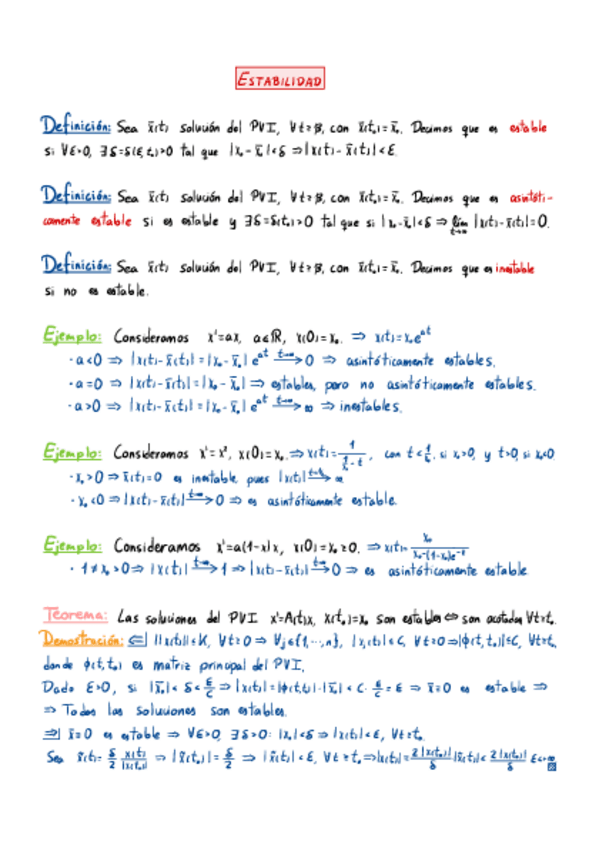 ESTABILIDAD
Definición: Sea x̄(t) solución del PVI, ∀t≥β, con x̄(t₀)=x̄₀. Decimos que es estable
si ∀ε>0, ∃δ=δ(ε,t₀)>0 tal que |x₀-x̄₀|<δ ⇒ |x(t)-x̄(t)|<ε.
Definición: Sea x̄(t) solución del PVI, ∀t≥β, con x̄(t₀)=x̄₀. Decimos que es asintóti-
camente estable si es estable y ∃δ=δ(t₀)>0 tal que si |x₀-x̄₀|<δ ⇒ lím t→∞ |x(t)-x̄(t)|=0.
Definición: Sea x̄(t) solución del PVI, ∀t≥β, con x̄(t₀)=x̄₀. Decimos que es inestable
si no es estable.
Ejemplo: Consideramos x'=ax, a∈ℝ, x(0)=x₀. ⇒ x(t)=x₀e^{at}
· a<0 ⇒ |x(t)-x̄(t)|=|x₀-x̄₀|e^{at} t→∞→ 0 ⇒ asintóticamente estables.
· a=0 ⇒ |x(t)-x̄(t)|=|x₀-x̄₀| ⇒ estables, pero no asintóticamente estables.
· a>0 ⇒ |x(t)-x̄(t)|=|x₀-x̄₀|e^{at} t→∞→ ∞ ⇒ inestables.
Ejemplo: Consideramos x'=x², x(0)=x₀. ⇒ x(t)=1/(1/x₀-t), con t<1/x₀ si x₀>0, y t>0, si x₀<0
· x₀>0 ⇒ x̄(t)=0 es inestable, pues |x(t)| → ∞
· x₀<0 ⇒ |x(t)-x̄(t)| t→∞→ 0 ⇒ es asintóticamente estable.
Ejemplo: Consideramos x'=a(1-x)x, x(0)=x₀≥0. ⇒ x(t)=x₀/
· 1≠x₀>0 ⇒ |x(t)| t→∞→ 1 ⇒ |x(t)-x̄(t)| t→∞→ 0 ⇒ es asintóticamente estable
Teorema: Las soluciones del PVI x'=A(t)x, x(t₀)=x₀ son estables ⇔ son acotadas ∀t≥t₀.
Demostración: ⇐| ||x(t)||≤K, ∀t≥0 ⇒ ∀j∈{1,…,n}, |xⱼ(t)|≤C, ∀t≥0 ⇒ |ϕ(t,t₀)|≤C, ∀t≥t₀
donde ϕ(t,t₀) es matriz principal del PVI.
Dado ε>0, si |x̄₀|<δ<ε/C ⇒ |x(t)|=|ϕ(t,t₀)|·|x̄₀|<C·ε/C=ε ⇒ x̄≡0 es estable ⇒
⇒ Todas las soluciones son estables.
⇒| x̄≡0 es estable ⇒ ∀ε>0, ∃δ>0: |x₀|<δ ⇒ |x(t)|<ε, ∀t≥t₀.
Sea x̃(t)=δ/2 x(t)/|x(t₀)| ⇒ |x̃(t₀)|=δ/2 ⇒ |x̃(t)|<ε, ∀t≥t₀ ⇒ |x(t)|=2|x(t₀)|/δ |x̃(t)|<2|x(t₀)|/δ ε<∞